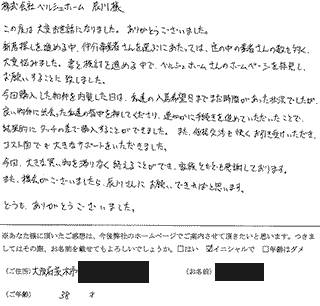 株式会社 ベルシュホーム 辰川様
この度は大変お世話になりました。ありがとうございました。
新居探しを進める中、仲介業者さんを選ぶにあたっては、世の中の業者さんの数も多く、
大変悩みました。妻と検討を進める中で、ベルシュホームさんのホームページを発見し、
お願いすることに致しました。
今回購入した物件を内覧した日は、私達の入居希望日まで まだ時間があった状況でしたが、
良い物件に出会った私達の背中を押してくださり、速やかに手続きを進めていただいたことで、
結果的にタッチの差で購入することができました。また、価格交渉も快くお引き受けいただき、
コスト面でも大きなサポートをいただきました。
今回、大きな買い物を滞りなく終えることができ、家族ともども感謝しております。
また、機会がございましたら、辰川さんに お願いできればと思います。
どうも、ありがとうございました。
※あなた様に頂いたご感想は、今後弊社のホームページでご案内させて頂きたいと思います。つきま
してはその際、お名前を載せてもよろしいでしょうか。□はい ☑イニシャルで □年齢はダメ
(ご住所) 大阪府茨木市 (お名前)
(ご年齢) 38 才